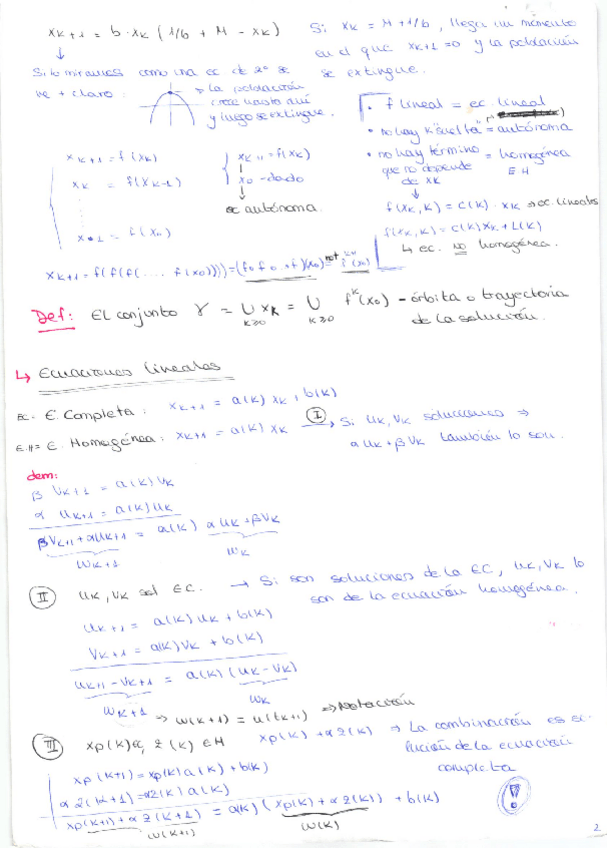 x_{k+1} = b · x_k (1/b + M - x_k)
Si x_k = M + 1/b, llega un momento
en el que x_{k+1} = 0 y la población
se extingue.
Si lo miramos como una ec de 2º se
ve + claro:
→ la población
crece hasta aquí
y luego se extingue.
• f lineal = ec. lineal
• no hay k suelta = autónoma
• no hay término = homogénea
que no dependa E H
de x_k
↓
f(x_k, k) = c(k) · x_k ⇒ ec. lineales
f(x_k, k) = c(k) x_k + L(k)
↳ ec. NO homogénea.
x_{k+1} = f(x_k)
x_k = f(x_{k-1})
x_1 = f(x_0)
x_{k+1} = f(x_k)
x_0 - dado
↓
ec autónoma.
x_{k+1} = f(f(f(... f(x_0)))) = (f∘f∘...∘f)(x_0) =
Def: El conjunto γ = ∪_{k≥0} x_k = ∪_{k≥0} f^k(x_0) - órbita o trayectoria
de la solución.
↳ Ecuaciones lineales
EC = E. Completa: x_{k+1} = a(k) x_k + b(k)
E.H = E. Homogénea: x_{k+1} = a(k) x_k
(I) → Si u_k, v_k soluciones ⇒
α u_k + β v_k también lo son.
dem:
β v_{k+1} = a(k) v_k
α u_{k+1} = a(k) u_k
β v_{k+1} + α u_{k+1} = a(k) α u_k + β v_k
w_{k+1} w_k
(II) u_k, v_k sol EC. → Si son soluciones de la EC, u_k, v_k lo
son de la ecuación homogénea.
u_{k+1} = a(k) u_k + b(k)
v_{k+1} = a(k) v_k + b(k)
u_{k+1} - v_{k+1} = a(k) (u_k - v_k)
w_{k+1} w_k
⇒ w(k+1) = u(k+1) ⇒ Notación
(III) x_p(k) EC, z(k) EH x_p(k) + α z(k) ⇒ La combinación es so-
lución de la ecuación
completa
x_p(k+1) = x_p(k) a(k) + b(k)
α z(k+1) = α z(k) a(k)
x_p(k+1) + α z(k+1) = a(k) (x_p(k) + α z(k)) + b(k)
w(k+1) w(k)
!
2